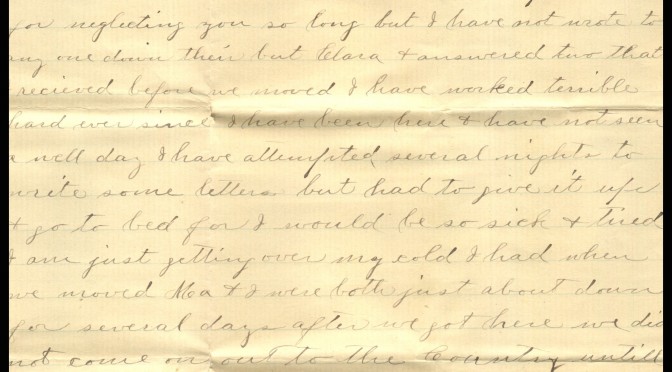 for neglecting you so long but I have not wrote to
any one down their but Clara & answered two that
I recieved before we moved I have worked terrible
hard ever since I have been here & have not seen
a well day I have attempted several nights to
write some letters but had to give it up
& go to bed for I would be so sick & tired
I am just getting over my cold I had when
we moved Ma & I were both just about down
for several days after we got here we did
not come on out to the Country untill